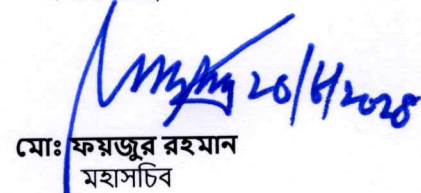 20/6/2025
মোঃ ফয়জুর রহমান
মহাসচিব